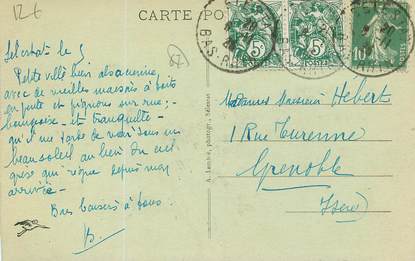 126
CARTE POSTALE
SÉLESTAT
BAS-RHIN
5c
5c
10
Sélestat le 5
Petite ville bien alsacienne,
avec de vieilles maisons à toits
en pente et pignons sur rue;
bourgeoise et tranquille
qu'il me tarde de voir sous un
beau soleil au lieu du ciel
gris qui règne depuis mon
arrivée
Bons baisers à tous.
Mesdames Monsieur Hébert
1 Rue Turenne
Grenoble
Isère